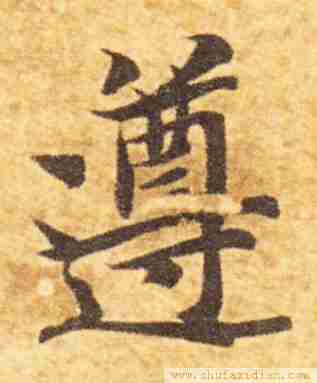 遵
www.shufazidian.com